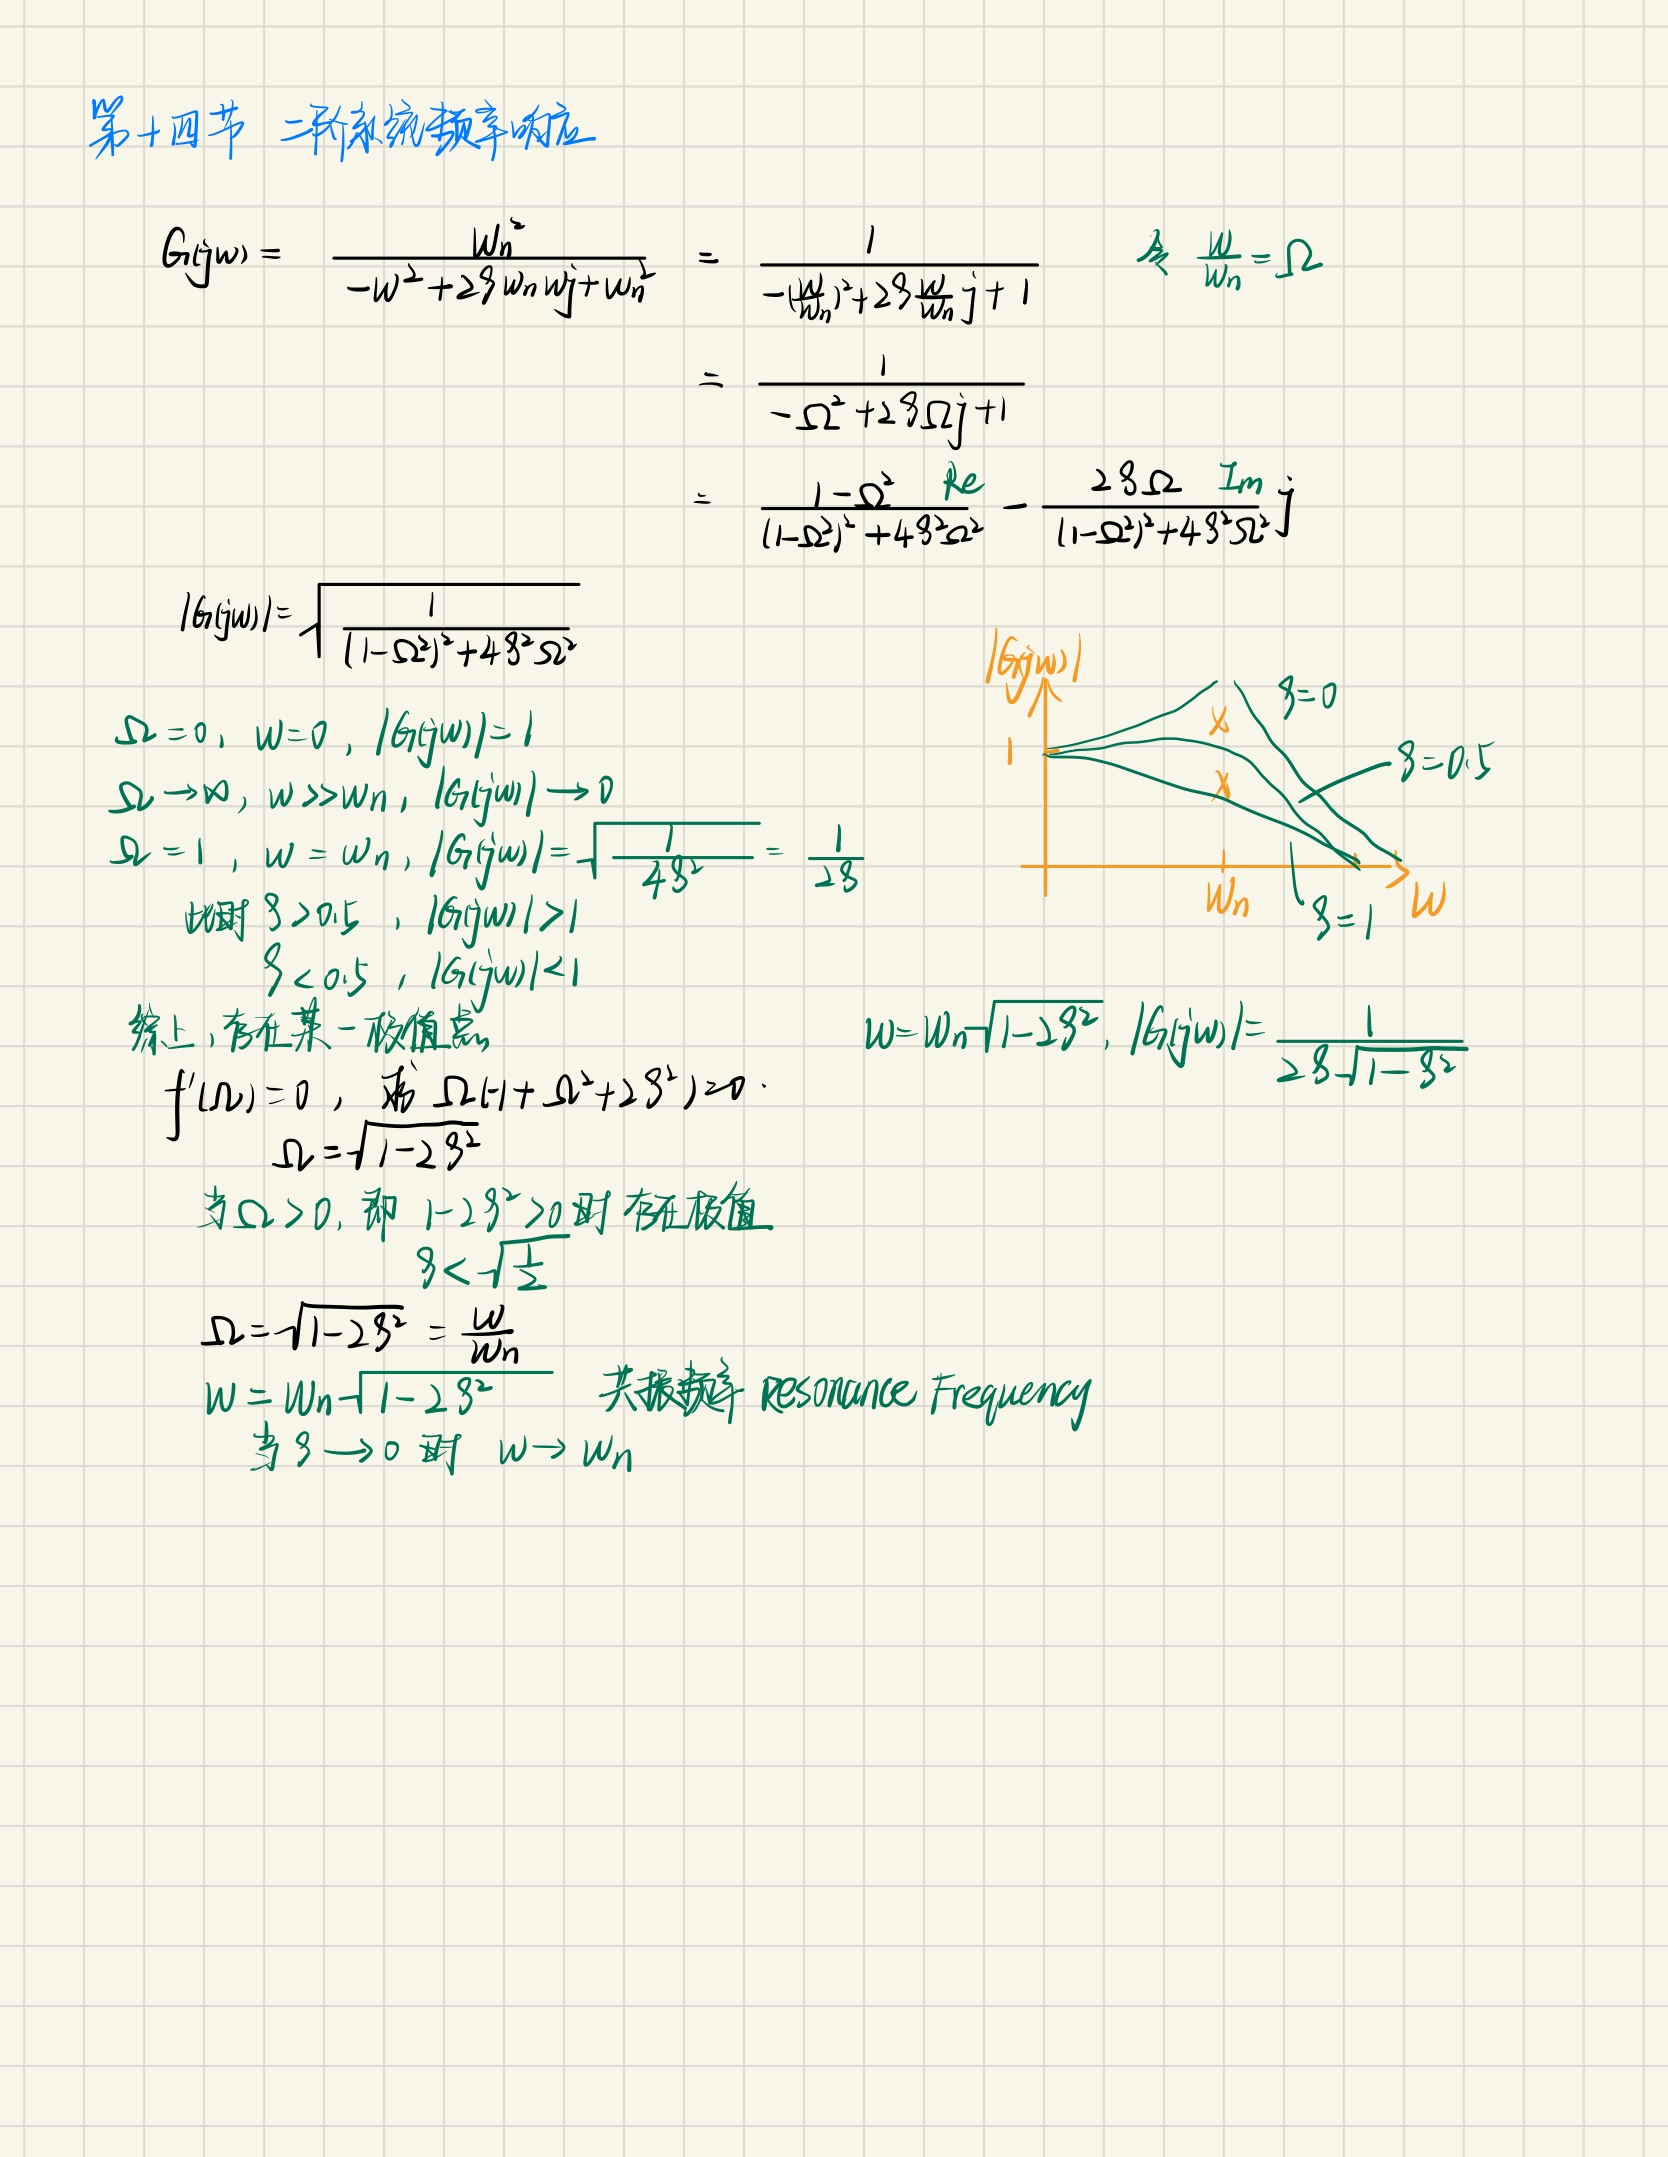 第十四节 二阶系统频率响应
G(jw) = Wn² / (-w² + 2ξwnwj + wn²) = 1 / (-(w/wn)² + 2ξ(w/wn)j + 1) 令 w/wn = Ω
= 1 / (-Ω² + 2ξΩj + 1)
= (1-Ω²) / ((1-Ω²)² + 4ξ²Ω²) Re - 2ξΩ / ((1-Ω²)² + 4ξ²Ω²) j Im
|G(jw)| = √(1 / ((1-Ω²)² + 4ξ²Ω²))
Ω = 0, w = 0, |G(jw)| = 1
Ω → ∞, w >> wn, |G(jw)| → 0
Ω = 1, w = wn, |G(jw)| = √(1 / 4ξ²) = 1 / 2ξ
此时 ξ > 0.5, |G(jw)| > 1
ξ < 0.5, |G(jw)| < 1
综上,存在某一极值点,
f'(Ω) = 0, 求 Ω(-1 + Ω² + 2ξ²) = 0.
Ω = √(1-2ξ²)
当Ω > 0, 即 1-2ξ² > 0 时 存在极值
ξ < √(1/2)
Ω = √(1-2ξ²) = w/wn
w = wn√(1-2ξ²) 共振频率 Resonance Frequency
当 ξ → 0 时 w → wn
|G(jw)|
1
ξ=0
ξ=0.5
ξ=1
Wn
W
w = wn√(1-2ξ²), |G(jw)| = 1 / (2ξ√(1-ξ²))